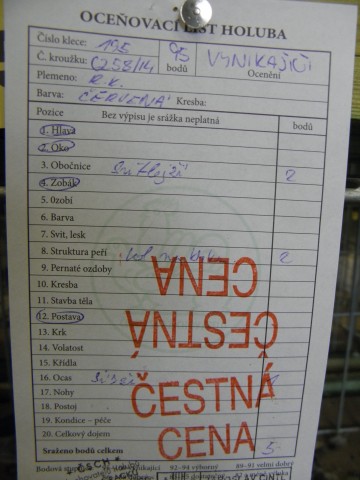 OCEŇOVACÍ LIST HOLUBA
Číslo klece: 195
95
bodů
VYNIKAJÍCÍ
Ocenění
Č. kroužku: C253/14
Plemeno: R.K.
Barva: ČERVENÁ Kresba:
Pozice Bez výpisu je srážka neplatná bodů
1. Hlava
2. Oko
3. Obočnice 2
4. Zobák
5. Ozobí
6. Barva
7. Svit, lesk
8. Struktura peří 2
9. Pernaté ozdoby
10. Kresba
11. Stavba těla
12. Postava
13. Krk
14. Volatost
15. Křídla
16. Ocas širší 1
17. Nohy
18. Postoj
19. Kondice – péče
20. Celkový dojem
Sraženo bodů celkem 5
ČESTNÁ
CENA
ČESTNÁ
CENA